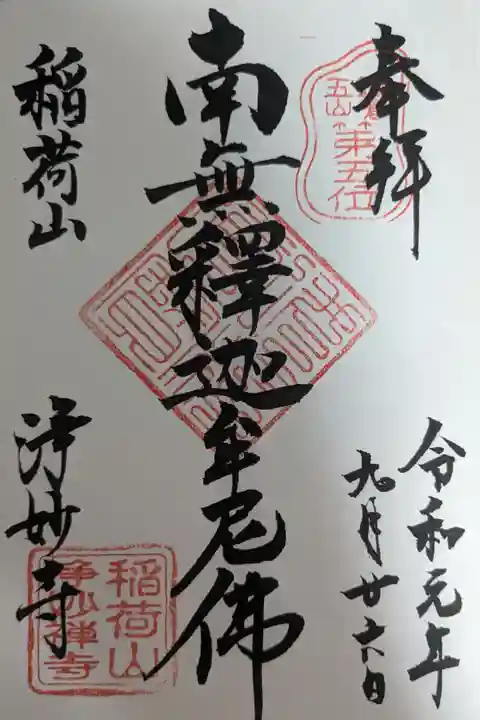 奉拝
五山
第五位
令和元年
九月廿六日
南無釋迦牟尼佛
稲荷山
浄妙寺
稲荷山
浄妙禅寺